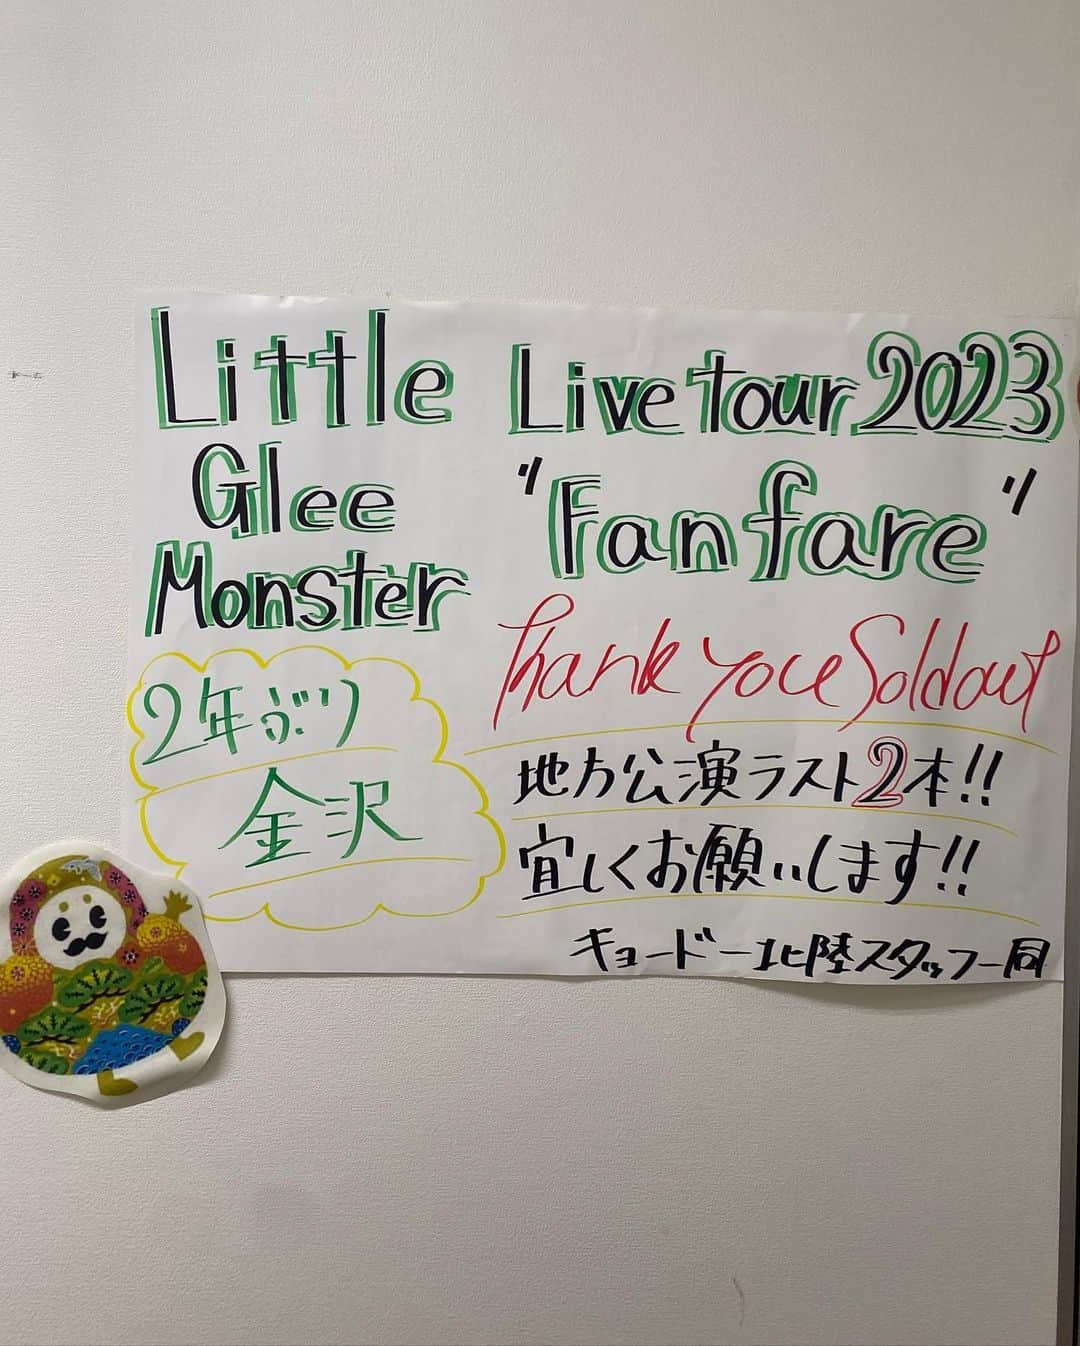 Little
Glee
Monster
Live tour 2023
"Fanfare"
Thank you Soldout
2年ぶり
金沢
地方公演ラスト2本!!
宜しくお願いします!!
キョードー北陸スタッフ一同